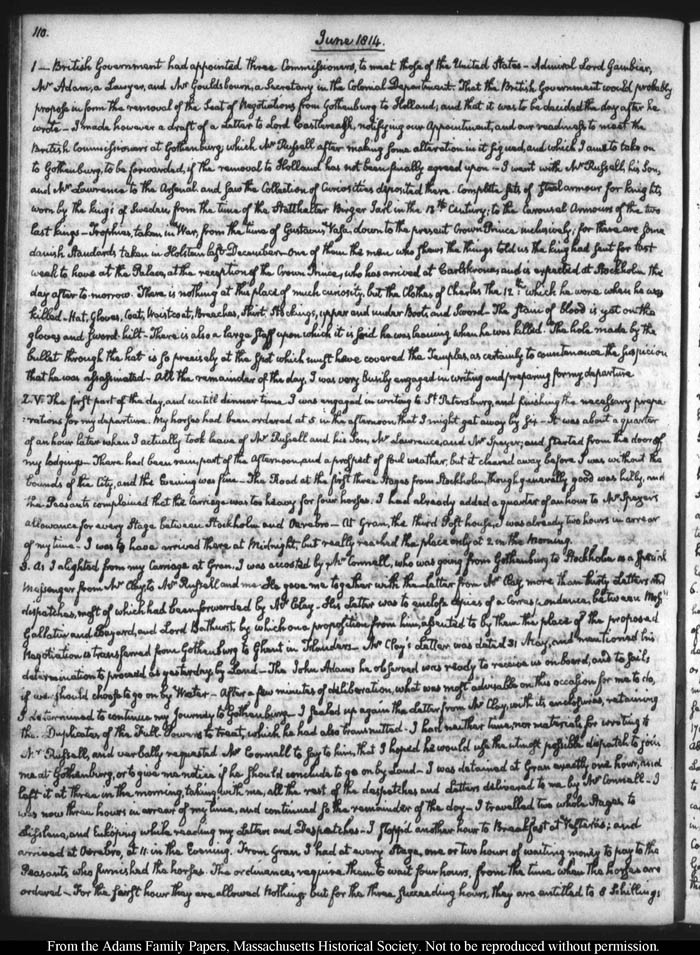 110.
June 1814.
1 — British Government had appointed three Commissioners, to meet those of the United States — Admiral Lord Gambier,
Mr Adams, a Lawyer, and Mr Gouldsbourn, a Secretary in the Colonial Department. That the British Government would probably
propose in form the removal of the Seat of Negotiations from Gothenburg to Holland; and that it was to be decided the day after he
wrote — I made however a draft of a Letter to Lord Castlereagh, notifying our Appointment, and our readiness to meet the
British Commissioners at Gothenburg, which Mr Russell after making some alteration in it signed, and which I am to take on
to Gothenburg, to be forwarded, if the removal to Holland has not been finally agreed upon — I went with Mr Russell, his Son,
and Mr Lawrence to the Arsenal and saw the Collection of Curiosities deposited there. Complete sets of steel armour for knights
worn by the king's of Sweden, from the time of the Stattholter Birger Jarl in the 12th Century; to the Carousal Armours of the two
last kings — Trophies, taken in War, from the time of Gustavus Vasa, down to the present Crown Prince inclusively; for there are some
danish Standards taken in Holstein last December — One of them the man who shows the things told us the king had sent for last
week to have at the Palace, at the reception of the Crown Prince, who has arrived at Carlskrona; and is expected at Stockholm the
day after to-morrow. There is nothing at this place of much curiosity, but the Clothes of Charles the 12th: which he wore when he was
killed — Hat, Gloves, Coat, Waistcoat, Breeches, Shirt, Stockings, upper and under Boots, and Sword — The stain of blood is yet on the
gloves and sword-hilt — There is also a large staff upon which it is said he was leaning when he was killed. The hole made by the
bullet through the hat is so precisely at the spot which must have covered the Temples, as certainly to countenance the suspicion
that he was assassinated — All the remainder of the day, I was very busily engaged in writing and preparing for my departure
2. V: The first part of the day, and untill dinner time I was engaged in writing to St Petersburg, and finishing the necessary prepa
:rations for my departure. My horses had been ordered at 5. in the afternoon, that I might get away by It was about a quarter
of an hour later when I actually took leave of Mr Russell and his Son, Mr Lawrence, and Mr Speyer; and started from the door of
my lodgings — There had been rain, part of the Afternoon, and a prospect of foul weather, but it cleared away before I was without the
bounds of the City, and the Evening was fine — The Road at the first three Stages from Stockholm, though generally good was hilly, and
the Peasants complained that the Carriage was too heavy for four horses. I had already added a quarter of an hour to Mr Speyer's
allowance for every Stage between Stockholm and Oerebro — At Gran, the third Post house, I was already two hours in arrear
of my time — I was to have arrived there at Midnight, but really reached the place only at 2. in the Morning.
3. As I alighted from my Carriage at Gran, I was accosted by Mr Connell, who was going from Gothenburg to Stockholm as a special
Messenger from Mr Clay to Mr Russell and me. He gave me together with the Letter from Mr Clay, more than thirty Letters and
despatches, most of which had been forwarded by Mr Clay — His Letter was to enclose copies of a Correspondence, between Messrs
Gallatin and Bayard, and Lord Bathurst, by which on a proposition from him, assented to by them the place of the proposed
Negotiation is transferred from Gothenburg to Ghent in Flanders — Mr Clay's Letter was dated 31 May, and mentioned his
determination to proceed as yesterday by Land — The John Adams he observed was ready to receive us on board, and to sail,
if we should choose to go on by Water — After a few minutes of deliberation, what was most adviseable on this occasion for me to do,
I determined to continue my Journey to Gothenburg — I sealed up again the Letter from Mr Clay, with its enclosures, retaining
the Duplicates of the Full Powers to treat, which he had also transmitted — I had neither time, nor materials for writing to
Mr Russell, and verbally requested Mr Connell to say to him, that I hoped he would use the utmost possible dispatch to join
me at Gothenburg, or to give me notice if he should conclude to go on by Land — I was detained at Gran exactly one hour, and
left it at three in the morning, taking with me, all the rest of the despatches and Letters delivered to me by Mr Connell — I
was now three hours in arrear of my time, and continued so the remainder of the day — I travelled two whole Stages, to
and Enköping while reading my Letters and Despatches — I stopp'd another hour to Breakfast at Vesterås; and
arrived at Oerebro, at 11. in the Evening. From Gran I had at every Stage, one or two hours of waiting money to pay to the
Peasants who furnished the horses. The ordinances require them to wait four hours, from the time when the horses are
ordered — For the first hour they are allowed Nothing, but for the three succeeding hours, they are entitled to 8 Schillings
From the Adams Family Papers, Massachusetts Historical Society. Not to be reproduced without permission.